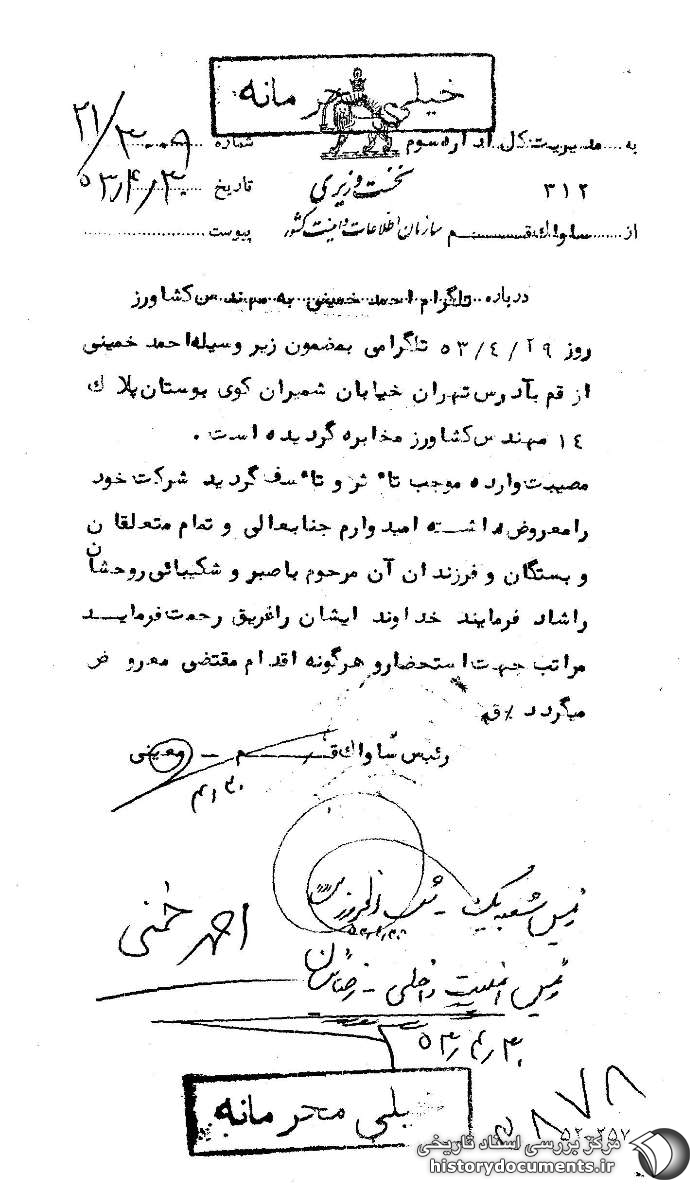 خیلی محرمانه
به ... مدیریت کل اداره سوم
۳۱۲
از ... ساواک قم
نخست وزیری
سازمان اطلاعات و امنیت کشور
شماره ۲۱/۳۰۰۹
تاریخ ۵۳/۴/۳۰
پیوست
درباره تلگرام احمد خمینی به مهندس کشاورز
روز ۵۳/۴/۲۹ تلگرامی بمضمون زیر وسیله احمد خمینی
از قم بآدرس تهران خیابان شمیران کوی بوستان پلاک
۱۴ مهندس کشاورز مخابره گردیده است .
مصیبت وارده موجب تاثر و تاسف گردید شرکت خود
را معروض داشته امیدوارم جنابعالی و تمام متعلقان
و بستگان و فرزندان آن مرحوم با صبر و شکیبائی روحشان
را شاد فرمایند خداوند ایشان را غریق رحمت فرماید
مراتب جهت استحضار و هرگونه اقدام مقتضی معروض
میگردد /ق
رئیس ساواک قم – معینی
۴/۳۰
رئیس شعبه یک -
احمد خمینی
رئیس امنیت داخلی -
۵۳/۴/۳۰
خیلی محرمانه
۵۲-۲۵۷
مرکز بررسی اسناد تاریخی
historydocuments.ir